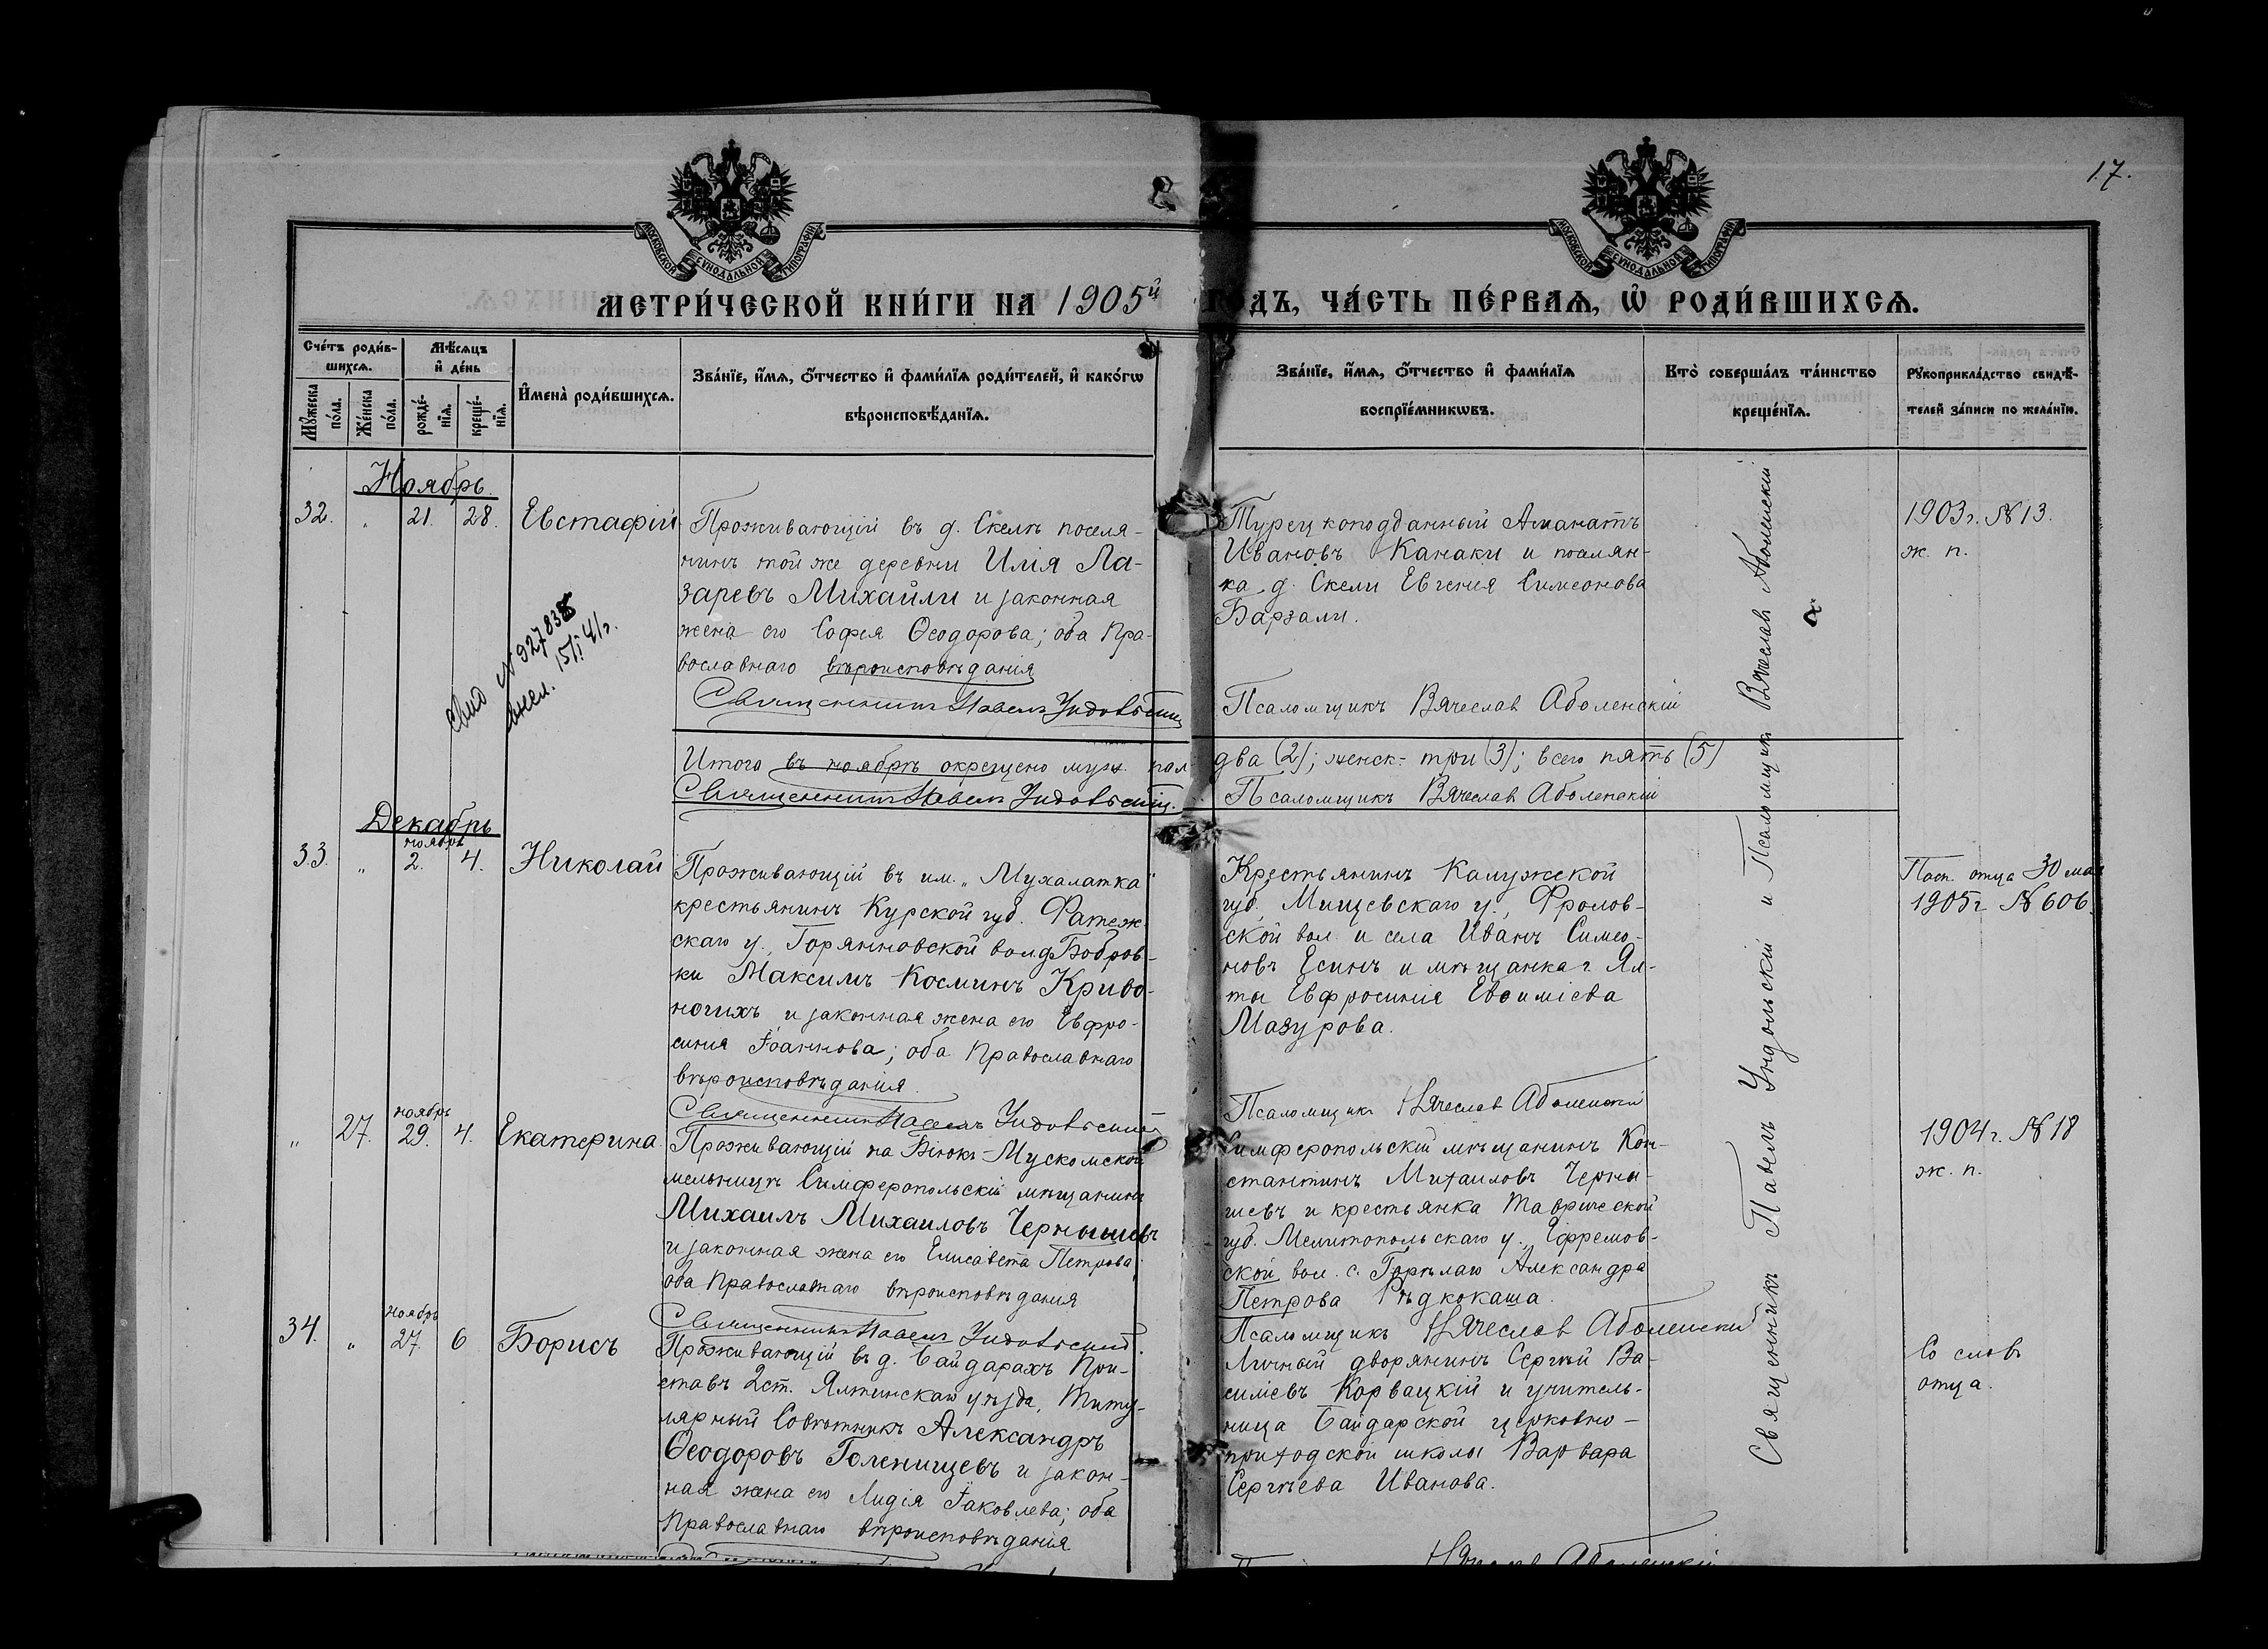 17.
МОСКОВСКОЙ СѴНОДАЛЬНОЙ ТИПОГРАФІИ
МОСКОВСКОЙ СѴНОДАЛЬНОЙ ТИПОГРАФІИ
МЕТРИ́ЧЕСКОЙ КНИ́ГИ НА 1905й ГОДЪ, ЧА́СТЬ ПЕ́РВАѦ, Ѡ҆ РОДИ́ВШИХСѦ.
Сче́тъ роди́в-
шихсѧ.
Мѣ́сѧцъ
и҆ де́нь
Мꙋ́жеска по́ла.
Же́нска по́ла.
рожде́-нїѧ.
креще́-нїѧ.
И҆мена̀ роди́вшихсѧ.
Зва́нїе, и҆́мѧ, ѻ҆́тчество и҆ фами́лїѧ роди́телей, и҆ како́гѡ
вѣроисповѣ́данїѧ.
Зва́нїе, и҆́мѧ, ѻ҆́тчество и҆ фами́лїѧ
воспрїе́мникѡвъ.
Кто̀ соверша́лъ та́инство
креще́нїѧ.
Рꙋкоприкла́дство свидѣ́-
телей за́писи по жела́нїю.
Ноябрь.
32. " 21. 28. Евстафій
Проживающій въ д. Скелѣ поселя-
нинъ той же деревни Илія Ла-
заревъ Михайли и законная
жена его Софія Ѳеодорова; оба Пра-
вославнаго вѣроисповѣданія
Священникъ Павелъ Ундольскій
Турецкоподданный Аманатъ
Ивановъ Канаки и поселян-
ка д. Скели Евгенія Симеонова
Барзали.
Псаломщикъ Вячеславъ Аболенскій
1903 г. № 13.
ж. п.
15/I 41 г.
Итого въ ноябрѣ окрещено муж. пол. два (2); женск.- три (3); всего пять (5)
Священникъ Павелъ Ундольскій. Псаломщикъ Вячеславъ Аболенскій
Декабрь
ноябрь
33. " 2. 4. Николай
Проживающій въ им. „Мухалатка"
крестьянинъ Курской губ. Фатеж-
скаго у., Горянновской вол. д. Бобров-
ки Максимъ Косминъ Криво-
ногихъ и законная жена его Евфро-
синія Іоаннова; оба Православнаго
вѣроисповѣданія.
Священникъ Павелъ Ундольскій
Крестьянинъ Калужской
губ. Мищевскаго у., Фролов-
ской вол. и села Иванъ Симео-
новъ Есинъ и мѣщанка г. Ял-
ты Евфросинія Евѳиміева
Мазурова.
Псаломщикъ Вячеславъ Аболенскій
Пасп. отца 30 мая
1905 г. № 606.
ноябрь
" 27. 29. 4. Екатерина
Проживающій на Біюкъ-Мускомской
мельницѣ Симферопольскій мѣщанинъ
Михаилъ Михаиловъ Чернышевъ
и законная жена его Елисавета Петрова;
оба Православнаго вѣроисповѣданія
Священникъ Павелъ Ундольскій.
Симферопольскій мѣщанинъ Кон-
стантинъ Михаиловъ Черны-
шевъ и крестьянка Таврической
губ. Мелитопольскаго у., Ефремов-
ской вол. с. Горѣлаго Александра
Петрова Рѣдкокаша.
Псаломщикъ Вячеславъ Аболенскій
1904 г. № 18
ж. п.
ноябрь
34. " 27. 6 Борисъ
Проживающій въ д. Байдарахъ При-
ставъ 2 ст. Ялтинскаго уѣзда, Титу-
лярный Совѣтникъ Александръ
Ѳеодоровъ Голенищевъ и закон-
ная жена его Лидія Іаковлева; оба
Православнаго вѣроисповѣданія
Личный дворянинъ Сергѣй Ва-
силіевъ Корвацкій и учитель-
ница Байдарской церковно-
приходской школы Варвара
Сергѣева Иванова.
Со словъ
отца.
Священникъ Павелъ Ундольскій и Псаломщикъ Вячеславъ Аболенскій